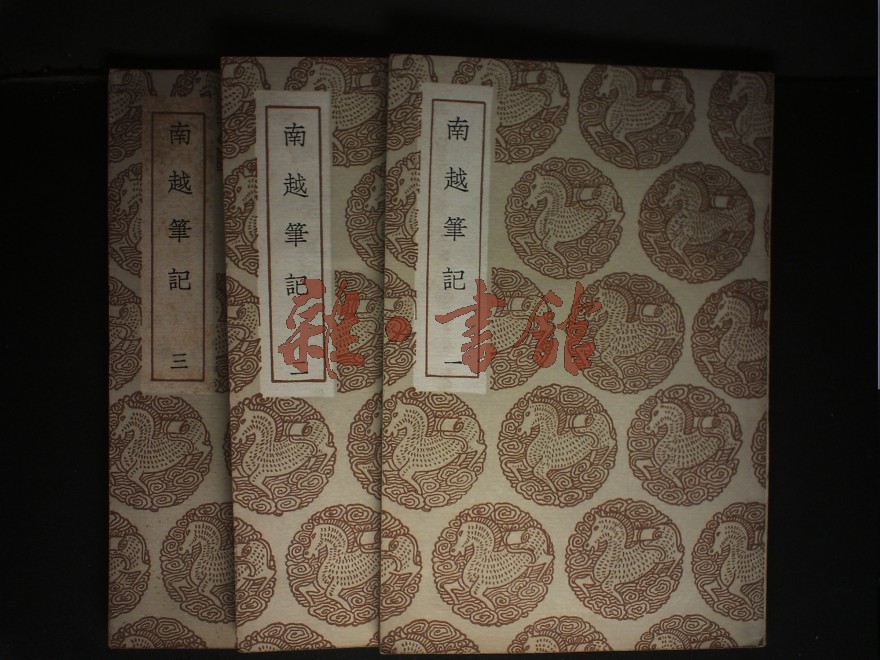 南越筆記 三
南越筆記 二
南越筆記 一
雜·書館